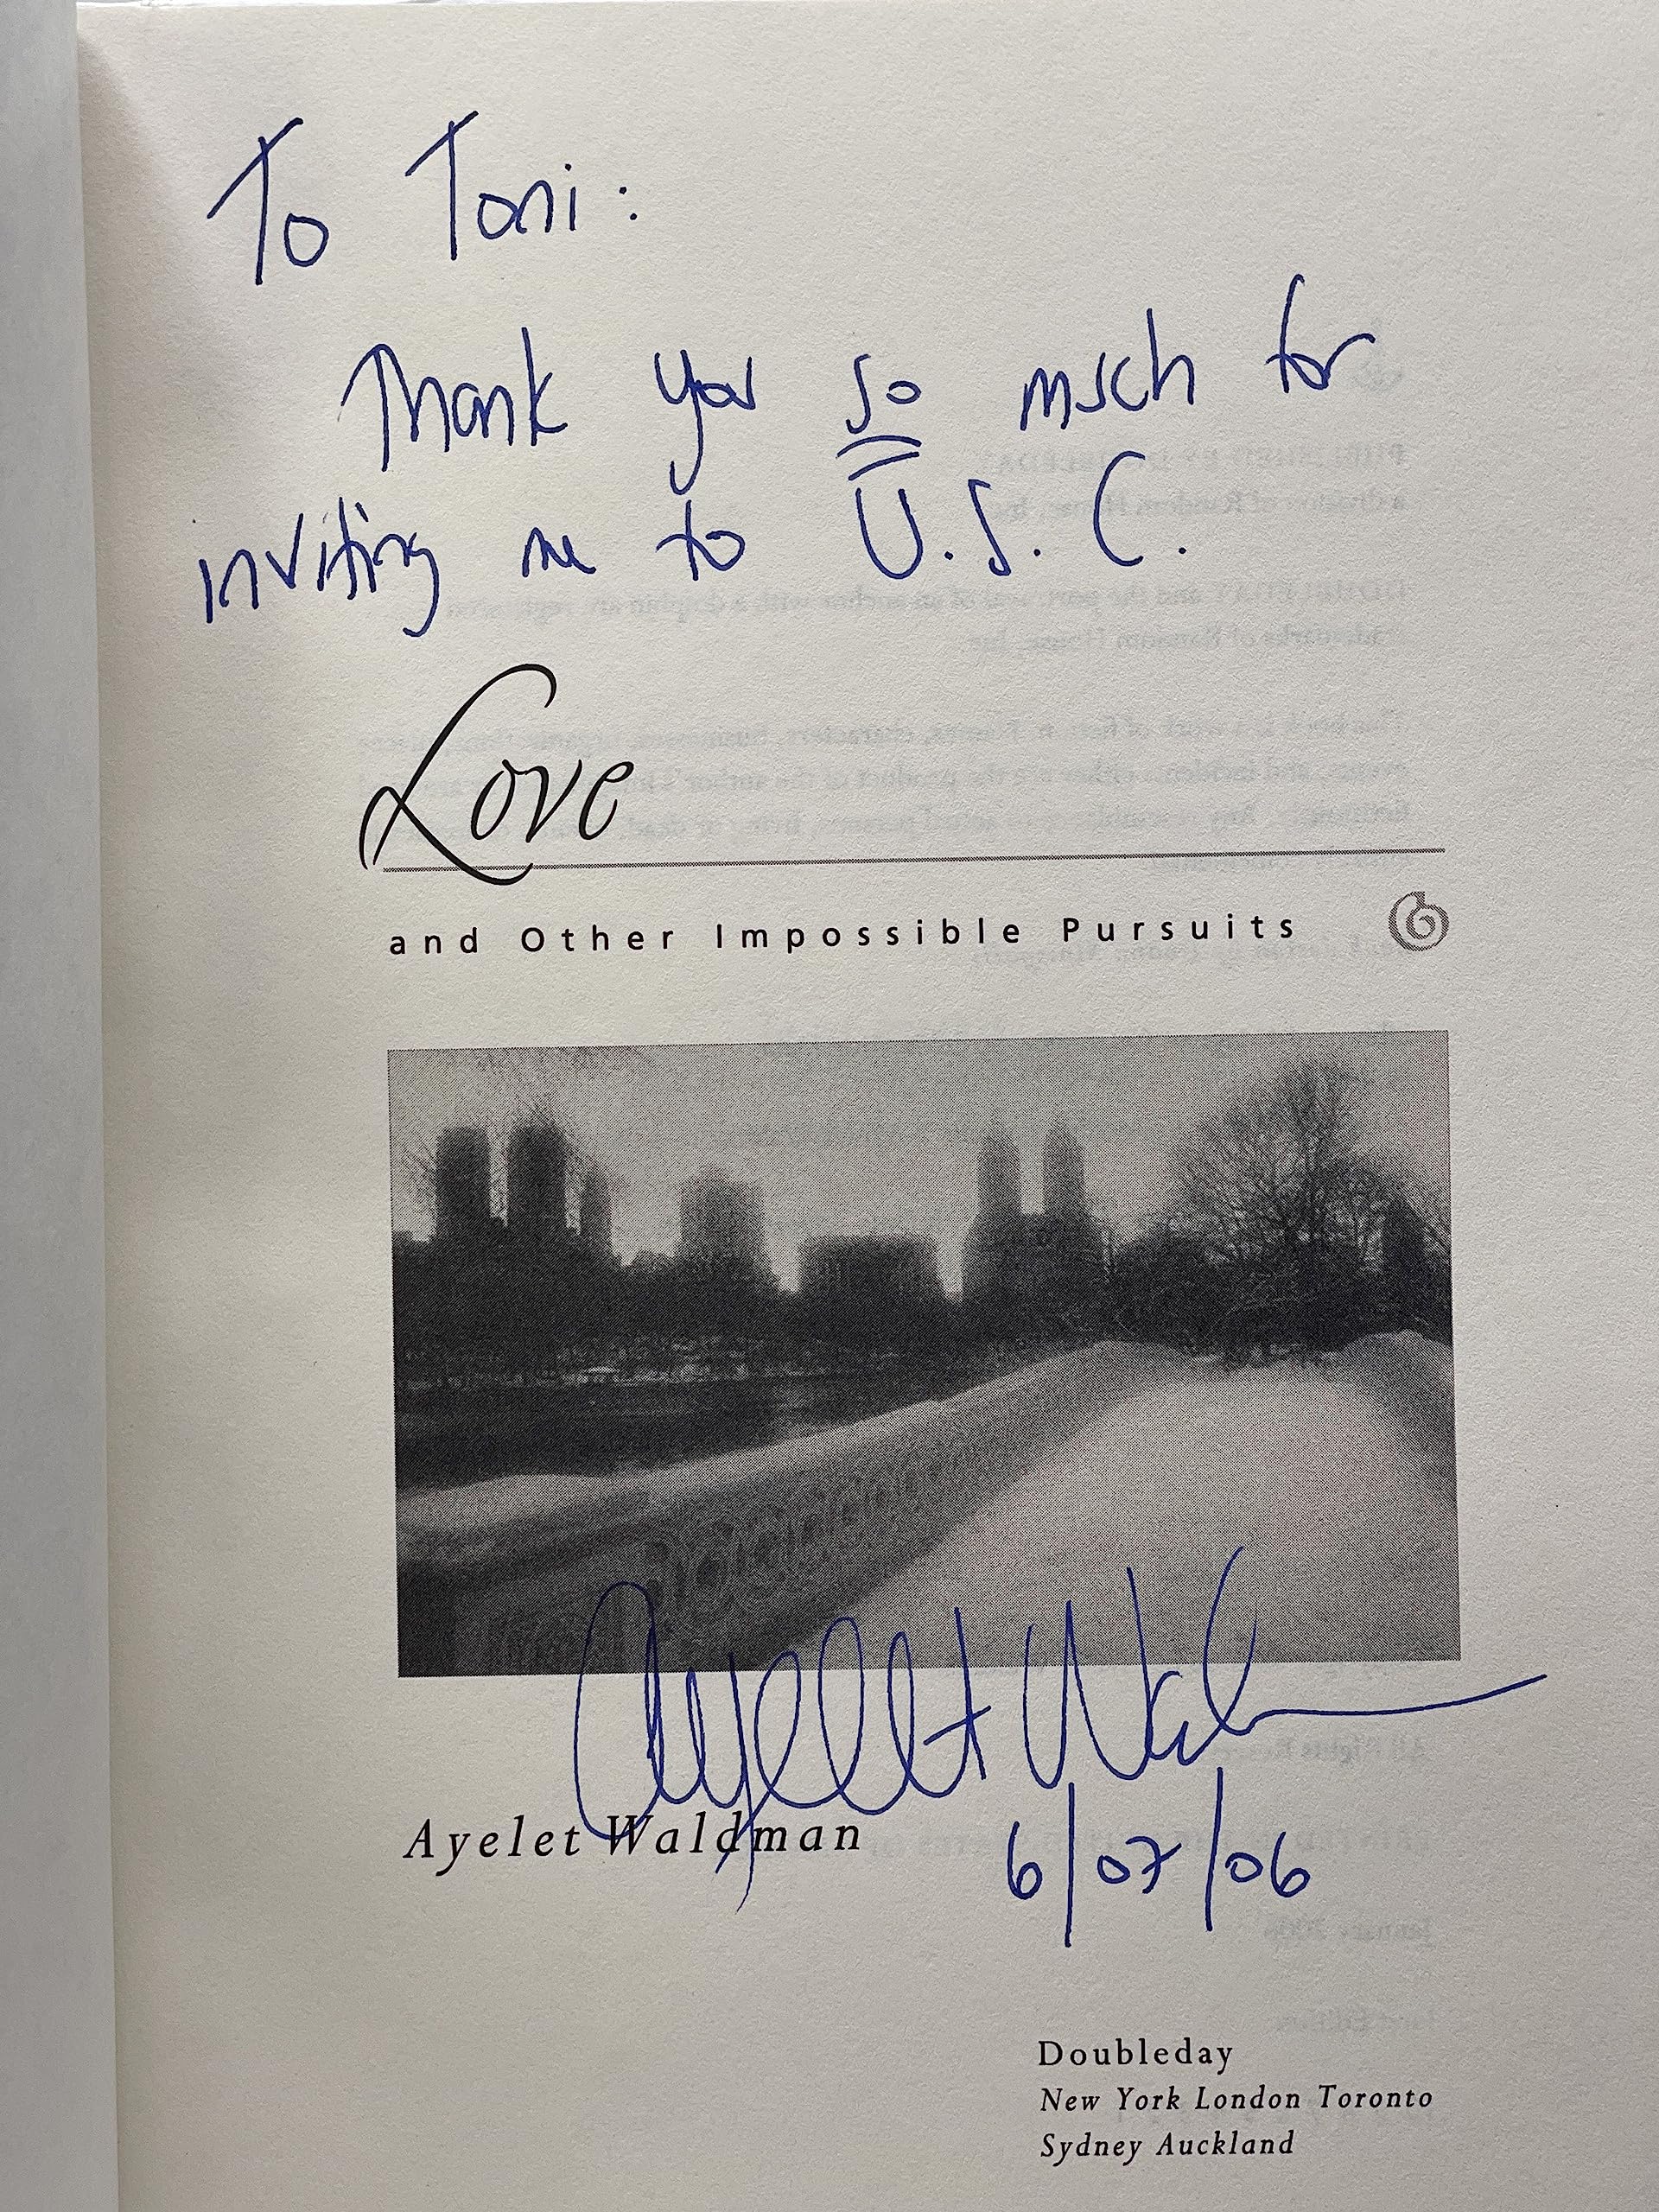 To Toni:
Thank you so much for
inviting me to U.S.C.
Love
and Other Impossible Pursuits
Ayelet Wal
Ayelet Waldman
6/07/06
Doubleday
New York London Toronto
Sydney Auckland